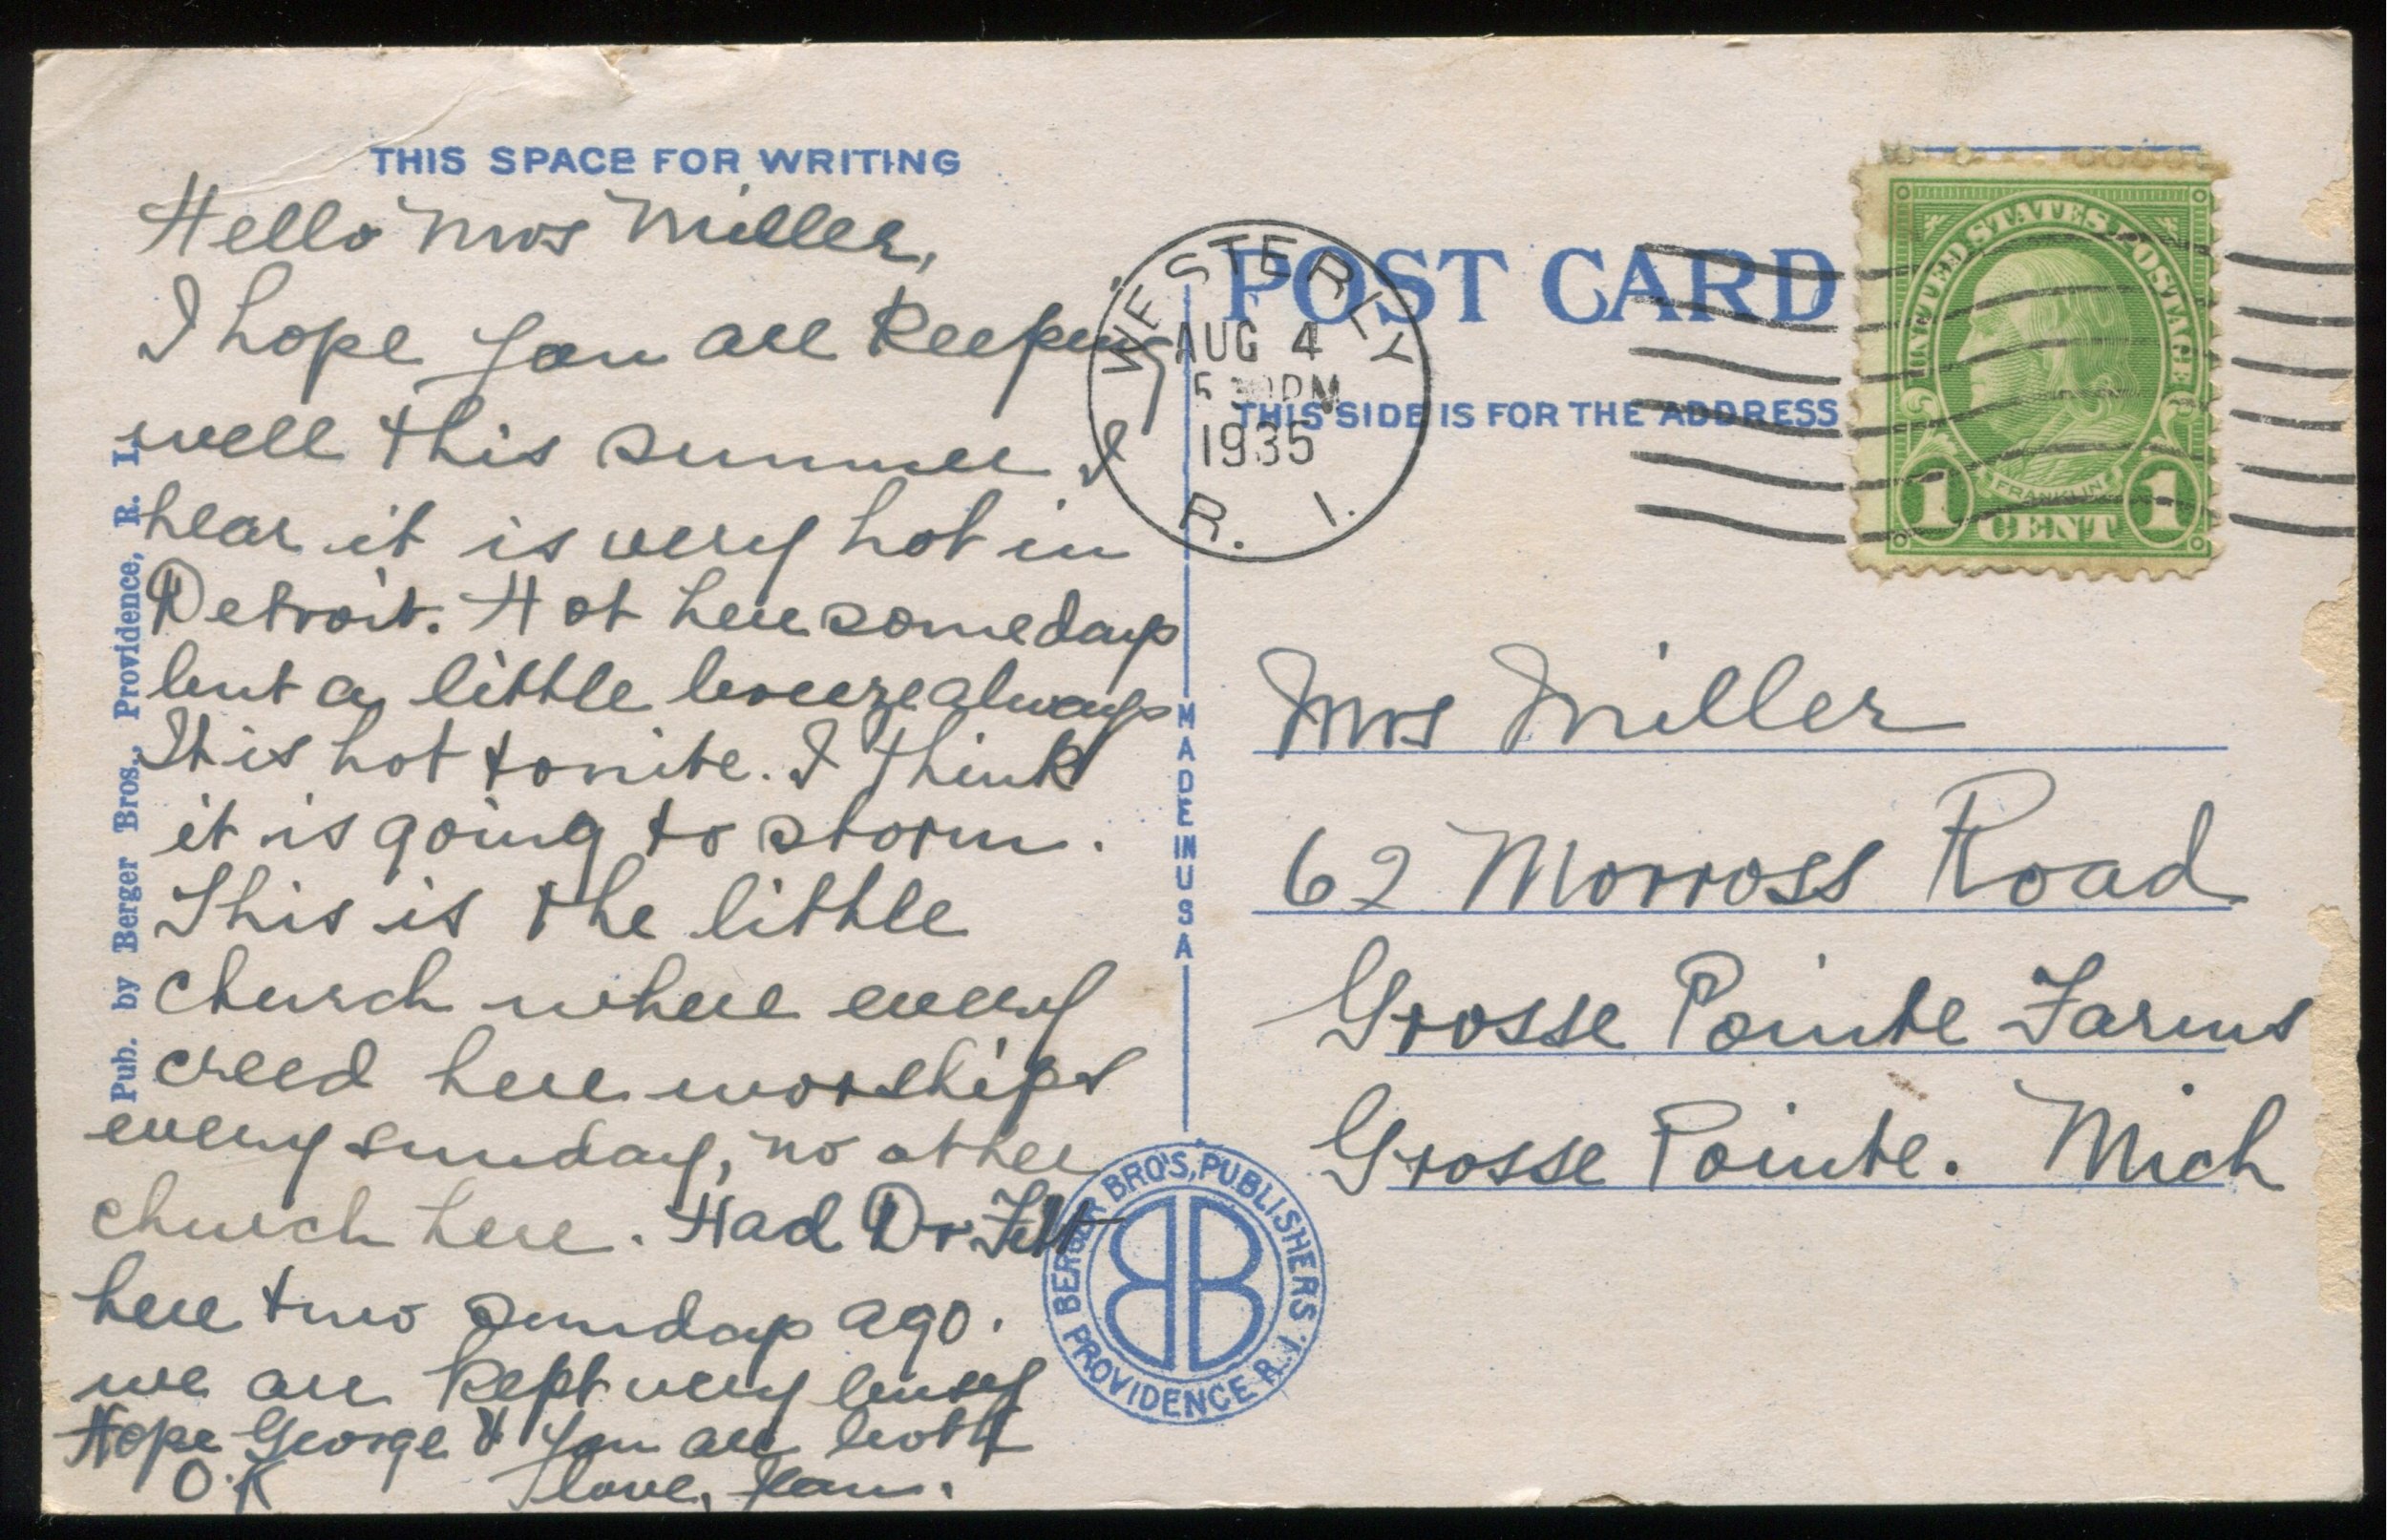 THIS SPACE FOR WRITING
Hello Mrs Miller,
I hope you are keeping
well this summer I
hear it is very hot in
Detroit. Hot here somedays
but a little breeze always
It is hot tonite. I think
it is going to storm.
This is the little
church where every
creed here worships
every sunday, no other
church here. Had Dr
here two sundays ago.
we are kept very busy
Hope George & you are both
O.K love, Jean.
Pub. by Berger Bros., Providence, R. I.
WESTERLY
AUG 4
PM
1935
R. I.
POST CARD
THIS SIDE IS FOR THE ADDRESS
UNITED STATES POSTAGE
FRANKLIN
1 CENT 1
MADE IN USA
Mrs Miller
62 Morross Road
Grosse Pointe Farms
Grosse Pointe. Mich
BERGER BRO'S, PUBLISHERS
BB
PROVIDENCE R.I.